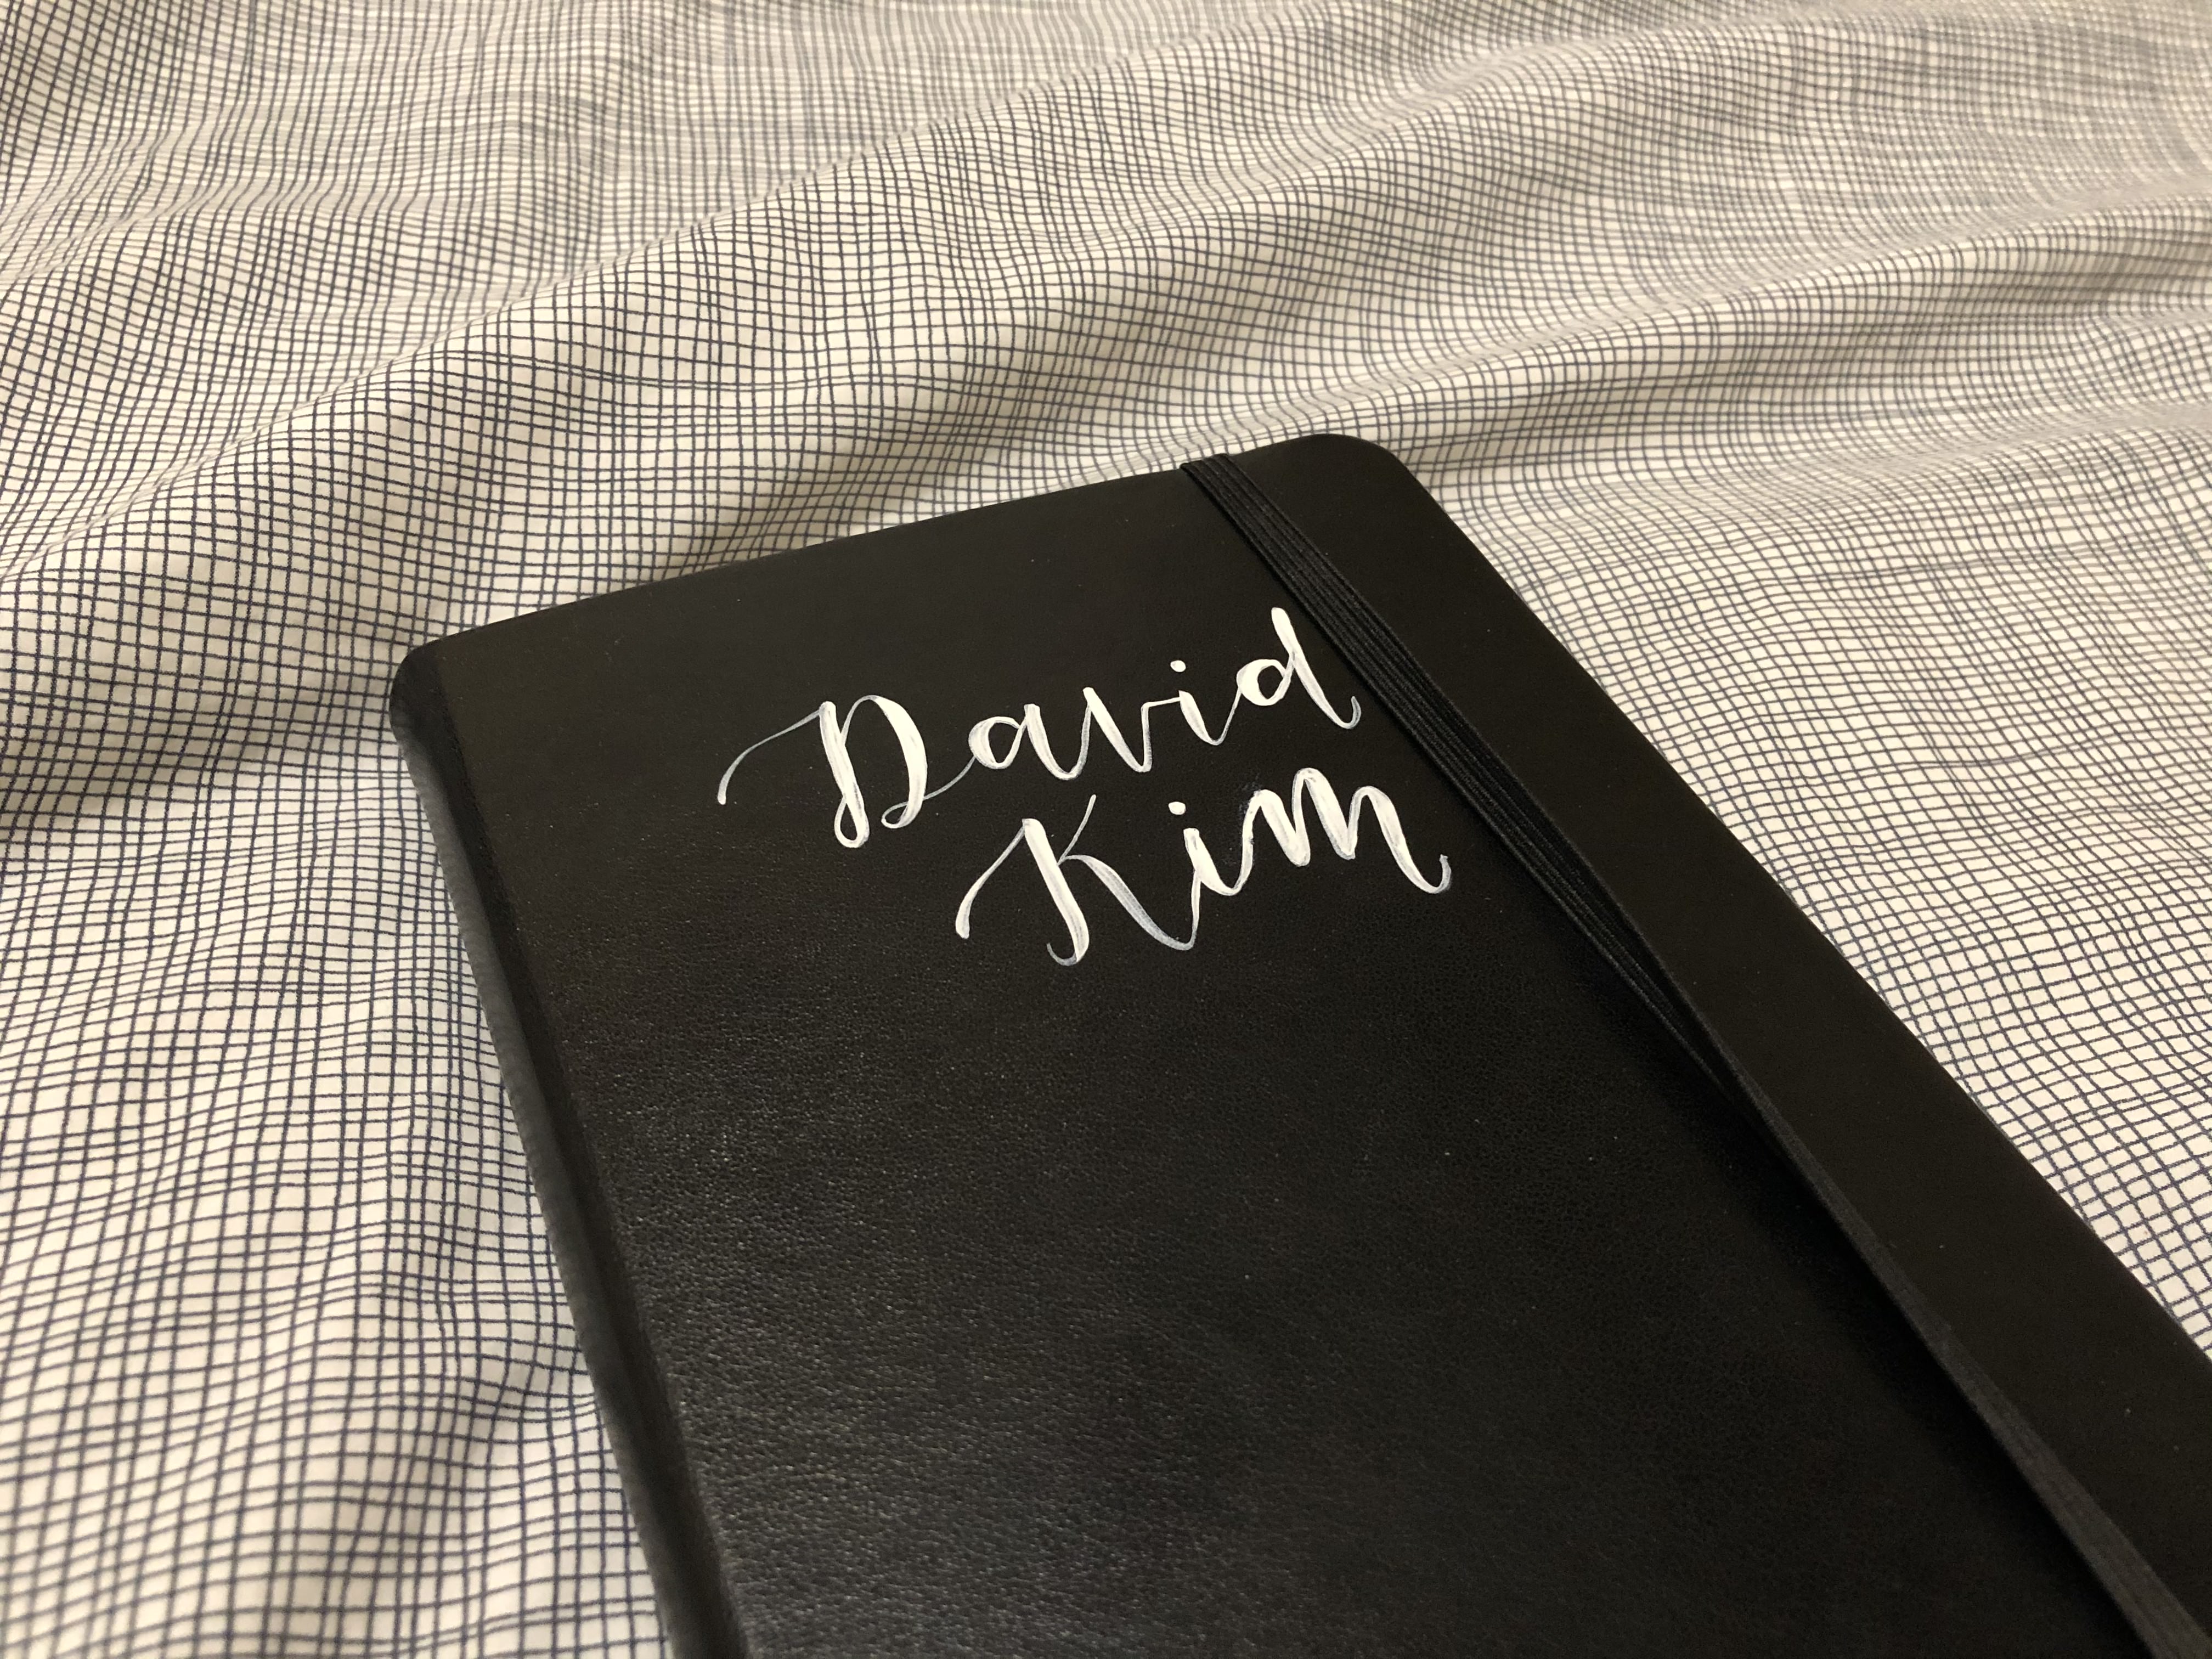 David
Kim